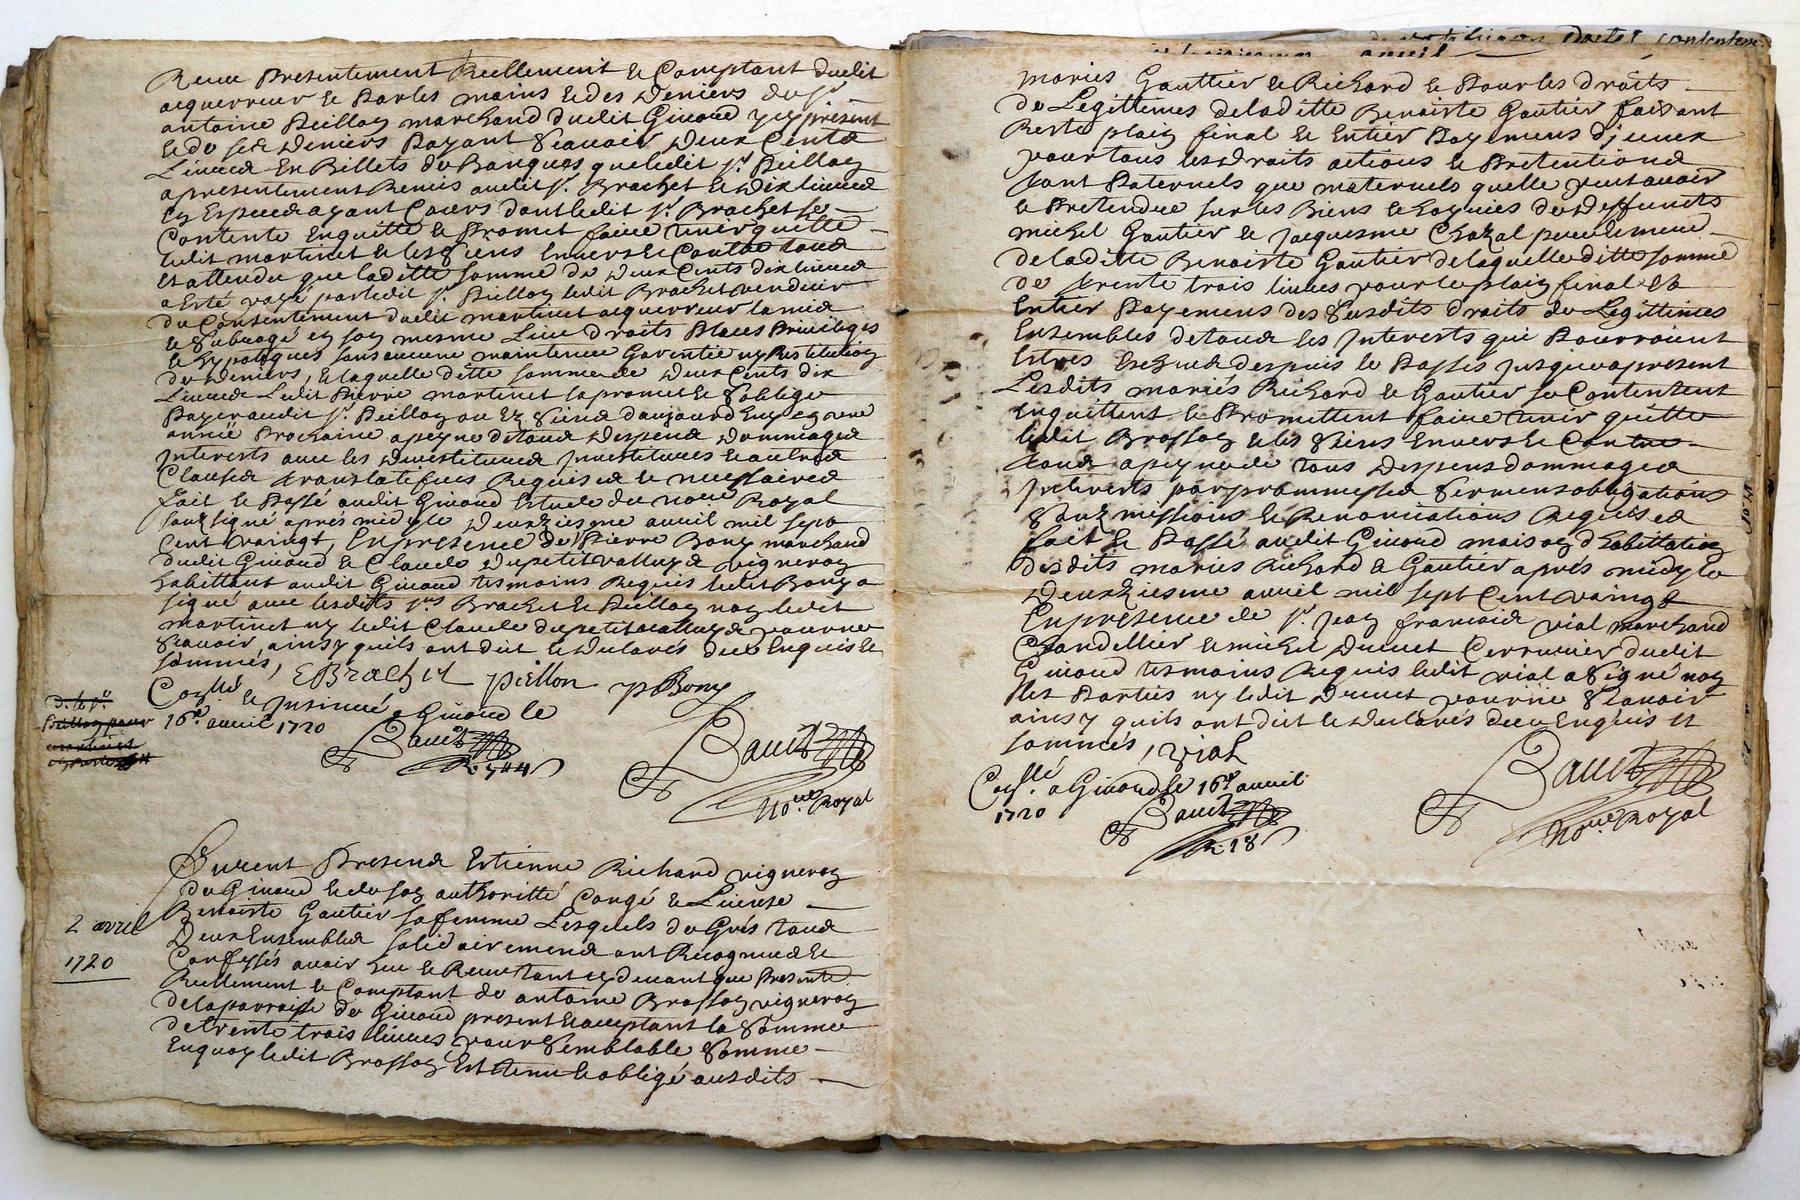 Receu Presentement Reellement & Comptant dudit
acquerreur & Par les mains & des Deniers du Sr
antoine Peillon marchand dudit Givord y cy present
& de ses Deniers Payant Scavoir Deux Cents
Livres En Billets de Banques que ledit Sr. Peillon
a presentement Remis audit Sr. Brachet & dix livres
En Especes ayant Cours dont ledit Sr Brachet se
Contente Enquitte & Promet faire tenir quitte
ledit martinet & les Siens Envers & Contre tous
Et attendu que laditte somme de deux Cents dix livres
a Esté payé par ledit Sr. Peillon ledit Brachet vendeur
du Consentement dudit martinet acquerreur la mis
& Subrogé en son mesme Lieu droits Places Privileges
& hypoteques sans aucune maintenue Garentie ny Restitution
de Deniers, & laquelle ditte somme de Deux Cents dix
Livres Ledit Pierre martinet la promet & Soblige
Payer audit Sr. Peillon ou Ez Siens daujourdhuy en une
année Prochaine a peyne de tous Despens Dommages
Interests avec les Devestitures Investitures & autres
Clauses translatifves Requises & necessaires
fait & Passé audit Givord Estude du no.re Royal
soubsigné apres midy le Deuxziesme avril mil sept
cent vaingt, En presence de Pierre Bony marchand
dudit Givord & Claude dupetitvalluys vigneron
habittant audit Givord tesmoins Requis ledit Bony a
signé avec lesdits Srs Brachet & Peillon non ledit
martinet ny ledit Claude dupetitvalluys pour ne
Scavoir, ainsy quils ont dit & Declarés deue Enquis &
sommés, EBrachet peillon pBony
Conllé & Insinué a Givord le
16e. avril 1720
Bauet
No.re Royal
2 avril
1720
Furent Presens Estienne Richard vigneron
de Givord & de son authoritté Congé & License
Benoiste Gautier sa femme Lesquels de Grés tous
Deux Ensembles solidairement ont Recognus &
Confessés avoir heu & Receu tant cy devant que Presente
Reellement & Comptant de antoine Brosson vigneron
de la parroisse de Givord present & acceptant la Somme
de trente trois livres pour Semblable Somme
En quoy ledit Brosson Est tenu & obligé ausdits
mariés Gauttier & Richard & Pour les droits
de Legittimes de laditte Benoiste Gautier faisant
Reste plain final & Entier Payement dj ceux
pour tous les droits actions & Pretentions
tant Paternels que maternels quelle peut avoir
& Pretendre sur les Biens & hoyries de Deffuncts
michel Gautier & Jacquesme Chazal pere & mere
de laditte Benoiste Gautier de laquelle ditte somme
de trente trois livres pour le plain final &
Entier Payement des Susdits droits de Legittimes
Ensembles de tous les Interests qui Pourroient
Estres Escheus despuis le Passés Jusques a present
Lesdits mariés Richard & Gautier se Contentent
Enquittent & Promettent faire tenir quitte
ledit Brosson & les Siens Envers & Contre
tous a peyne de tous Despens dommages
Interests par prommesses Serment obligations
Soubzmissions & Renonciations Requises
fait & Passé audit Givord maison d habittation
desdits mariés Richard & Gautier apres midy le
Deuxziesme avril mil sept Cent vaingt
En presence de Sr. Jean francois vial marchand
Chandellier & michel Ducret Serrurier dudit
Givord tesmoins Requis ledit vial a Signé non
les Parties ny ledit Ducret pour ne Scavoir
ainsy quils ont dit & Declarés deue Enquis et
sommés, vial
Conllé. a Givord le 16e avril
1720
Bauet
R. 18s
No.re Royal